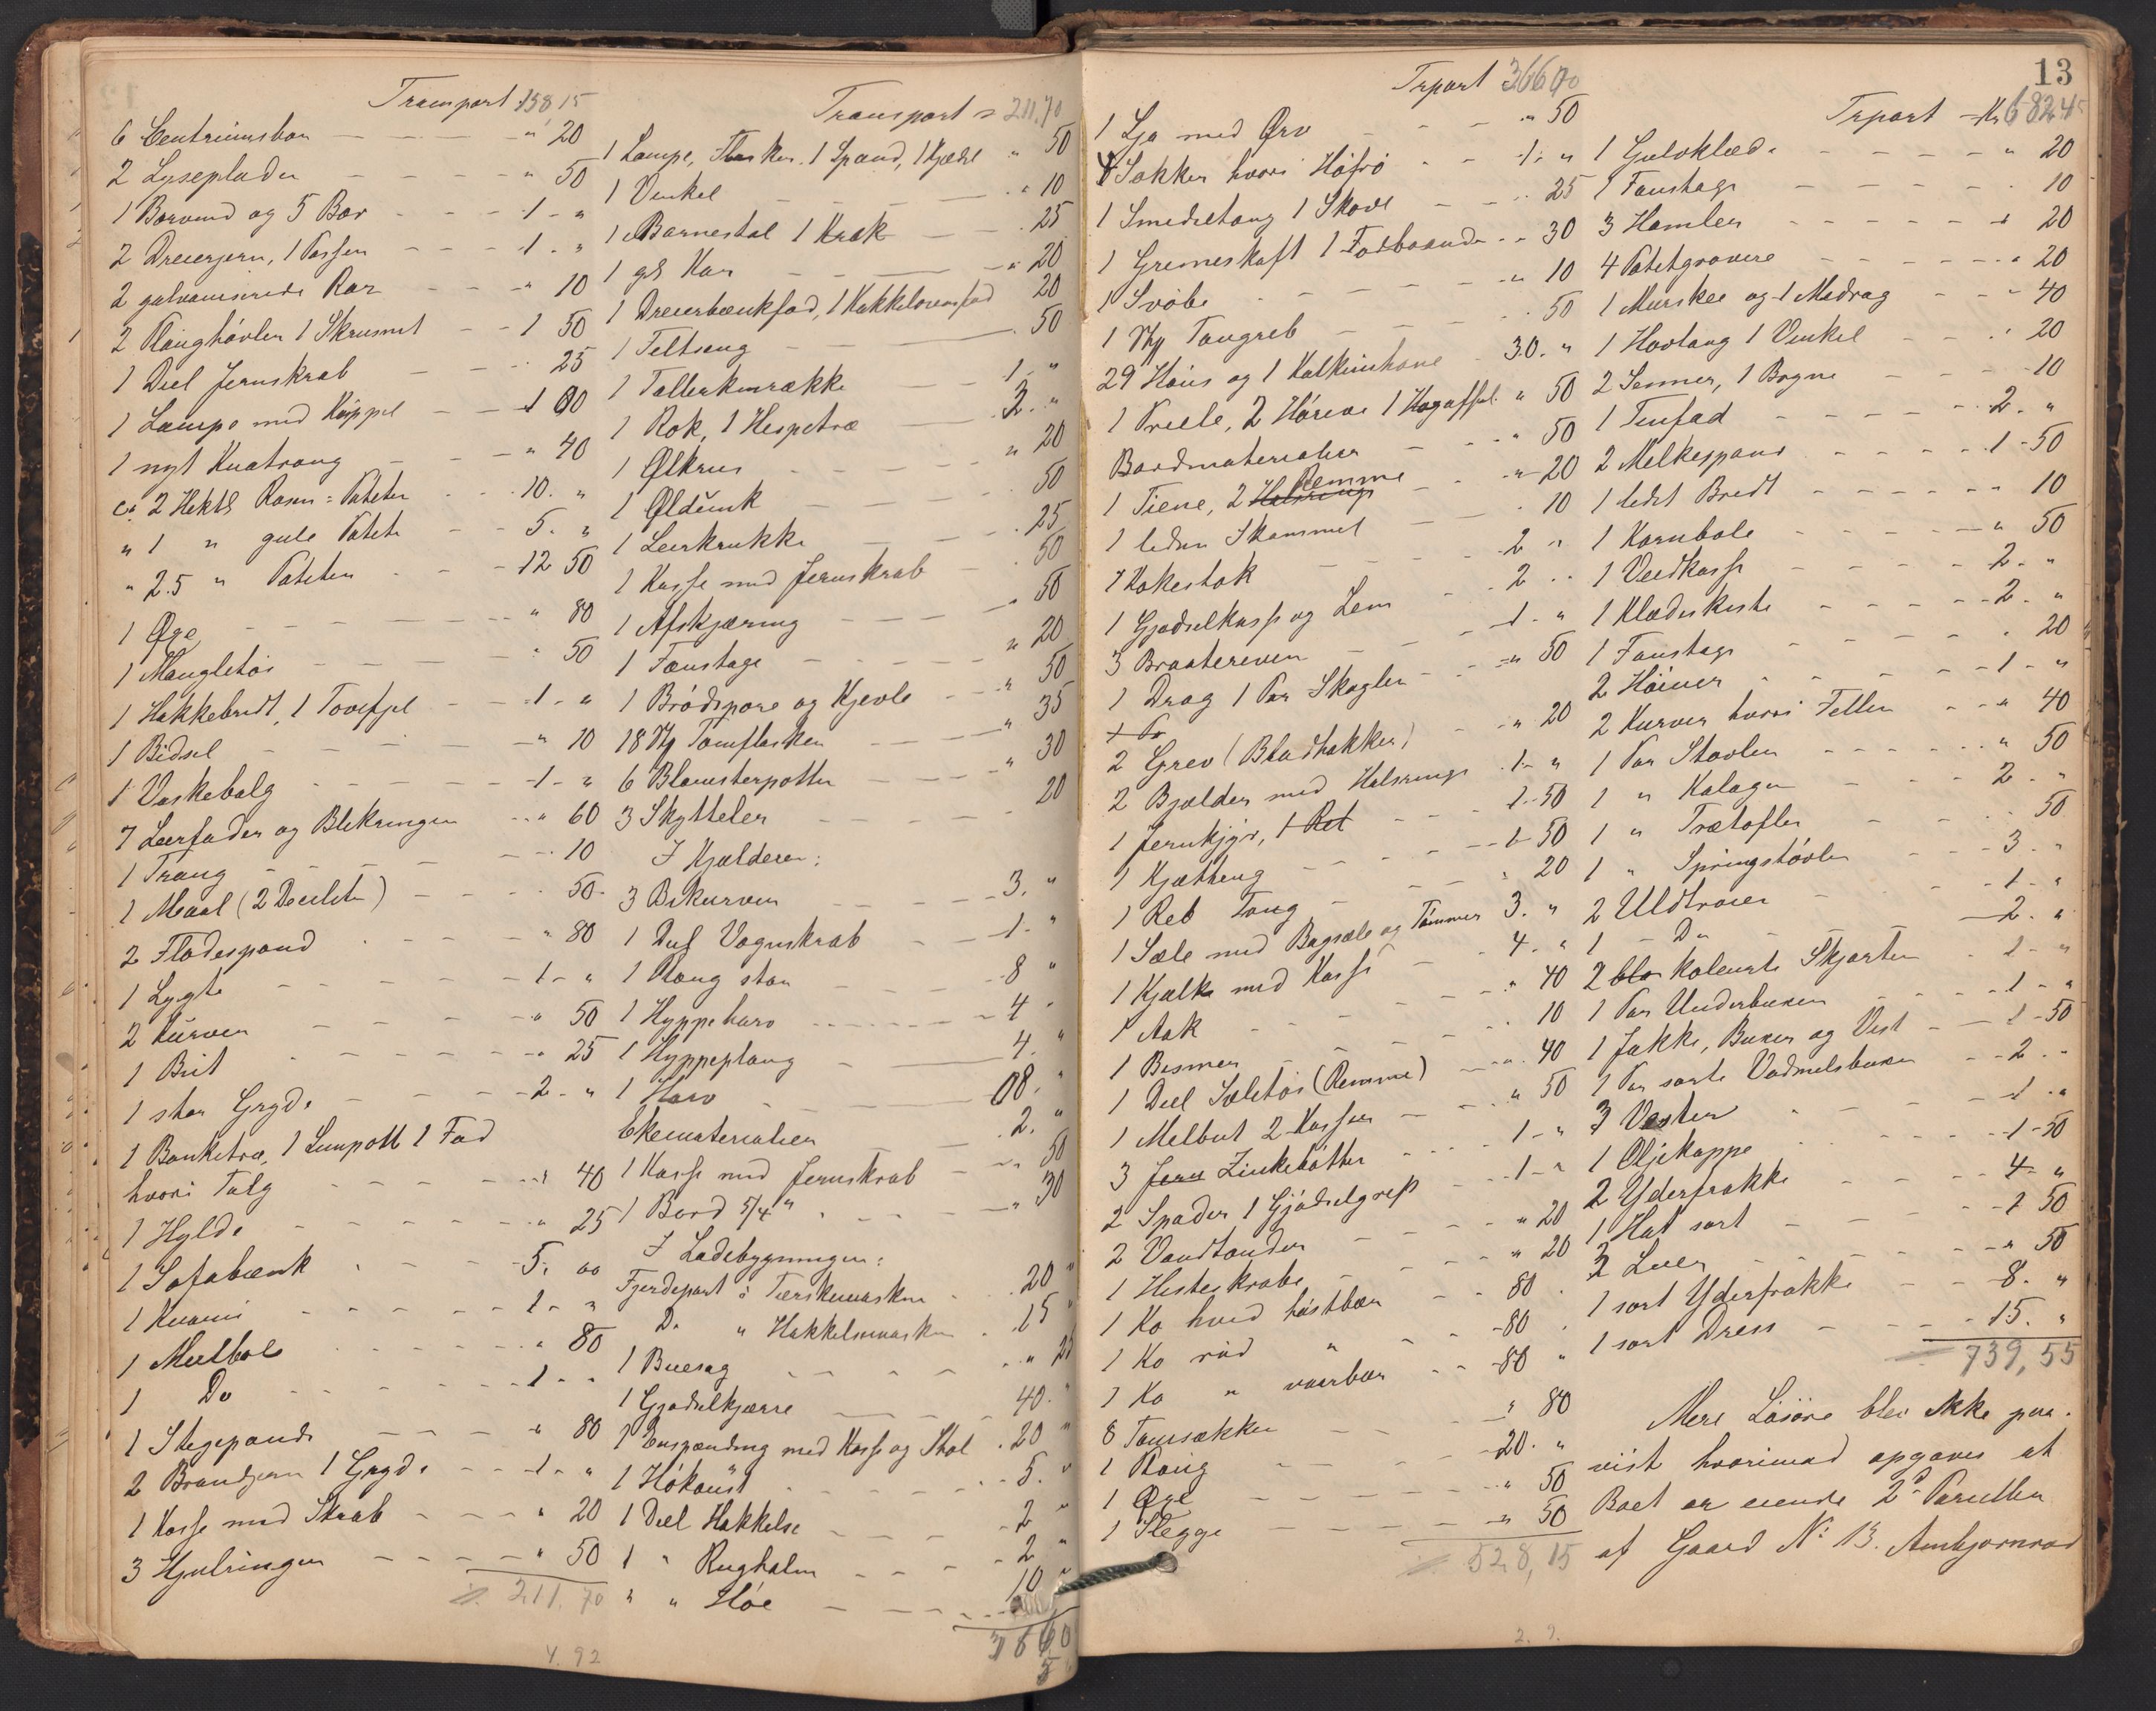 Transport 158 15
6 Centrumsbor - - - " 20
2 Lyseplader - - - " 50
1 Borvend og 5 Bor - - - 1 - "
2 Dreierjern, 1 Passer - - - 1 - "
2 galvaniserede Rør - - - " 10
2 Ploughøvler 1 Skrustik - - 1 50
1 Deel Jernskrab - - - 25
1 Lampe med Kuppel - - 1 00
1 nyt Kvatrang - - - " 40
ca 2 Hektl Rosen = Poteter - - 10. "
" 1 " gule Potet - - 5. "
" 2.5 " Poteter - - - 12 50
1 Øxe - - - " 80
1 Mangletøi - - - " 50
1 Hakkebredt, 1 Tovefjel - - 1 - "
1 Bidsel - - - " 10
1 Vaskebalg - - - 1 - "
7 Leerfader og Blikringer - - " 60
1 Traug - - - 10
1 Maal (2 Deciliter) - - - 50
2 Flødespand - - - " 80
1 Lygte - - - 1 - "
2 Kurver - - - " 50
1 Brit - - - " 25
1 stor Gryde - - - 2 - "
1 Banketræ, 1 Limpott 1 Fad
hvori Talg - - - " 40
1 Hylde - - - " 25
1 Sofabænk - - - 5. 00
1 Kværn - - - 1 - "
1 Meelbøle - - - " 80
1 Do - - - 1 - "
1 Stegepande - - - " 80
2 Brandjern 1 Gryde - - 1 - "
1 Kasse med Skrab - - - " 20
3 Hjulringer - - - " 50
211. 70
Transport = 211.70
1 Lampe, Flasker, 1 Spand, 1 Kjædel " 50
1 Vinkel - - - " 10
1 Barnestol 1 Krak - - 25
1 gl Kar - - - " 20
1 Dreierbænkfod, 1 Kakkelovnsfod 20
1 Feltseng - - - 50
1 Tallerkenrække - - 1 - "
1 Rok, 1 Hespetræ - - 3. "
1 Ølkrus - - - " 20
1 Øldunk - - - 50
1 Leerkrukke - - - 25
1 Kasse med Jernskrab - - 50
1 Afskjæring - - - " 50
1 Fanstage - - - " 20
1 Brødspore og Kjevle - - " 50
18 Stk Tomflasker - - " 35
6 Blomsterpotter - - " 30
3 Skytteler - - - 20
I Kjælderen:
3 Bikurver - - - 3. "
1 Deel Vognskrab - - 1. "
1 Ploug stor - - - 8 "
1 Hyppeharv - - - 4 "
1 Hyppeploug - - - 4. "
1 Harv - - - 08. "
Ekematerialier - - 2. "
1 Kasse med Jernskrab - - " 50
1 Bord 5/4 " - - - " 30
I Ladebygningen:
Fjerdepart i Tærskemaskin - 20 "
Do " Hakkelsmaskin - 15 "
1 Buesag - - - " 25
1 Gjødselkjærre - - - 40. "
1 Enspænding med Kasse og Stol - 20 "
1 Høkaust - - - 5. "
1 Deel Hakkelse - - - 2 "
1 " Rughalm - - - 2 "
" " Høe - - - 10 "
366 60
4. 92
13
Trport 366 70
1 Lja med Orv - - - " 50
4 Sækker hvori Høfrø - - 1 - "
1 Smedetang 1 Skovl - - - 25
1 Gremeskaft 1 Fodbaand - - 30
1 Svøbe - - - " 10
1 Stk Tangreb - - - 50
29 Høns og 1 Kalkunhane - 30. "
1 Preele, 2 Hørive 1 Høgaffel " 50
Bordmaterialier - - - " 50
1 Tiene, 2 Remme - - - " 20
1 liden Skammel - - - 10
1 Høkestok - - - 2 "
1 Gjødselkasse og Lem - - 2 "
3 Braateriver - - - 1 - "
1 Drag 1 Par Skagler - - " 50
2 Grev (Bladhakker) - - " 20
2 Bjælder med Halsringe - 1 - "
1 Jernkjør, 1 Ret - - - 1 - 50
1 Kjætting - - - 1 50
1 Reb Toug - - - " 20
1 Sæle med Bagsæle og Tømmer 3. "
1 Kjælke med Kasse - - 4. "
1 Aak - - - " 40
1 Bismer - - - 10
1 Deel Seletøi (Remme) - - " 40
1 Melbut 2 Kasser - - " 50
3 Jern Zinkebøtter - - 1 - "
2 Spader 1 Gjødselgreb - - 1 - "
2 Vandtønder - - - " 20
1 Hesteskrabe - - - " 20
1 Ko hvid høstbær - - 80 "
1 Ko rød " - - - 80 "
1 Ko " vaarbær - - - 80 "
8 Tomsækker - - - " 80
1 Ploug - - - 20. "
1 Øxe - - - " 50
1 Slegge - - - " 50
528, 15
Trport - Kr 682 45
1 Gulvklæde - - - " 20
1 Fanstage - - - 10
3 Hamler - - - " 20
4 Potetgravere - - - " 20
1 Murskee og 1 Madrag - - " 40
1 Hovtang 1 Vinkel - - " 20
2 Lenner, 1 Bogne - - - 10
1 Tinfad - - - 2. "
2 Melkespand - - - 1 - 50
1 lidet Bredt - - - " 10
1 Kornbøle - - - " 50
1 Vedkasse - - - 2. "
1 Klædeskiste - - - 2. "
1 Fanstage - - - " 20
2 Høiner - - - 1 - "
2 Kurver hvori Feller - - " 40
1 Par Støvler - - - " 50
1 " Kalager - - - 2. "
1 " Trætøfler - - - 50
1 " Springstøvler - - 3. "
2 Uldtrøier - - - 1 - "
1 - Do - - - 2. "
2 kolerte Skjorter - 1 - "
1 Par Underbuxer - - 1 - "
1 Jakke, Buxer og Vest - - 1 - 50
1 Par sorte Vadmelsbuxer - - 2. "
3 Vester - - - 1 - "
1 Oljekappe - - - 1 - 50
2 Yderfrakke - - - 4 - "
1 Hat sort - - - 1 50
2 Luer - - - " 50
1 sort Yderfrakke - - - 8. "
1 sort Dress - - - 15. "
739, 55
Mere Løsøre blev ikke paa-
vist hvorimod opgaves at
Boet er eiende 2de Parceller
af Gaard No 13. Ambjørnrød
2. 9.